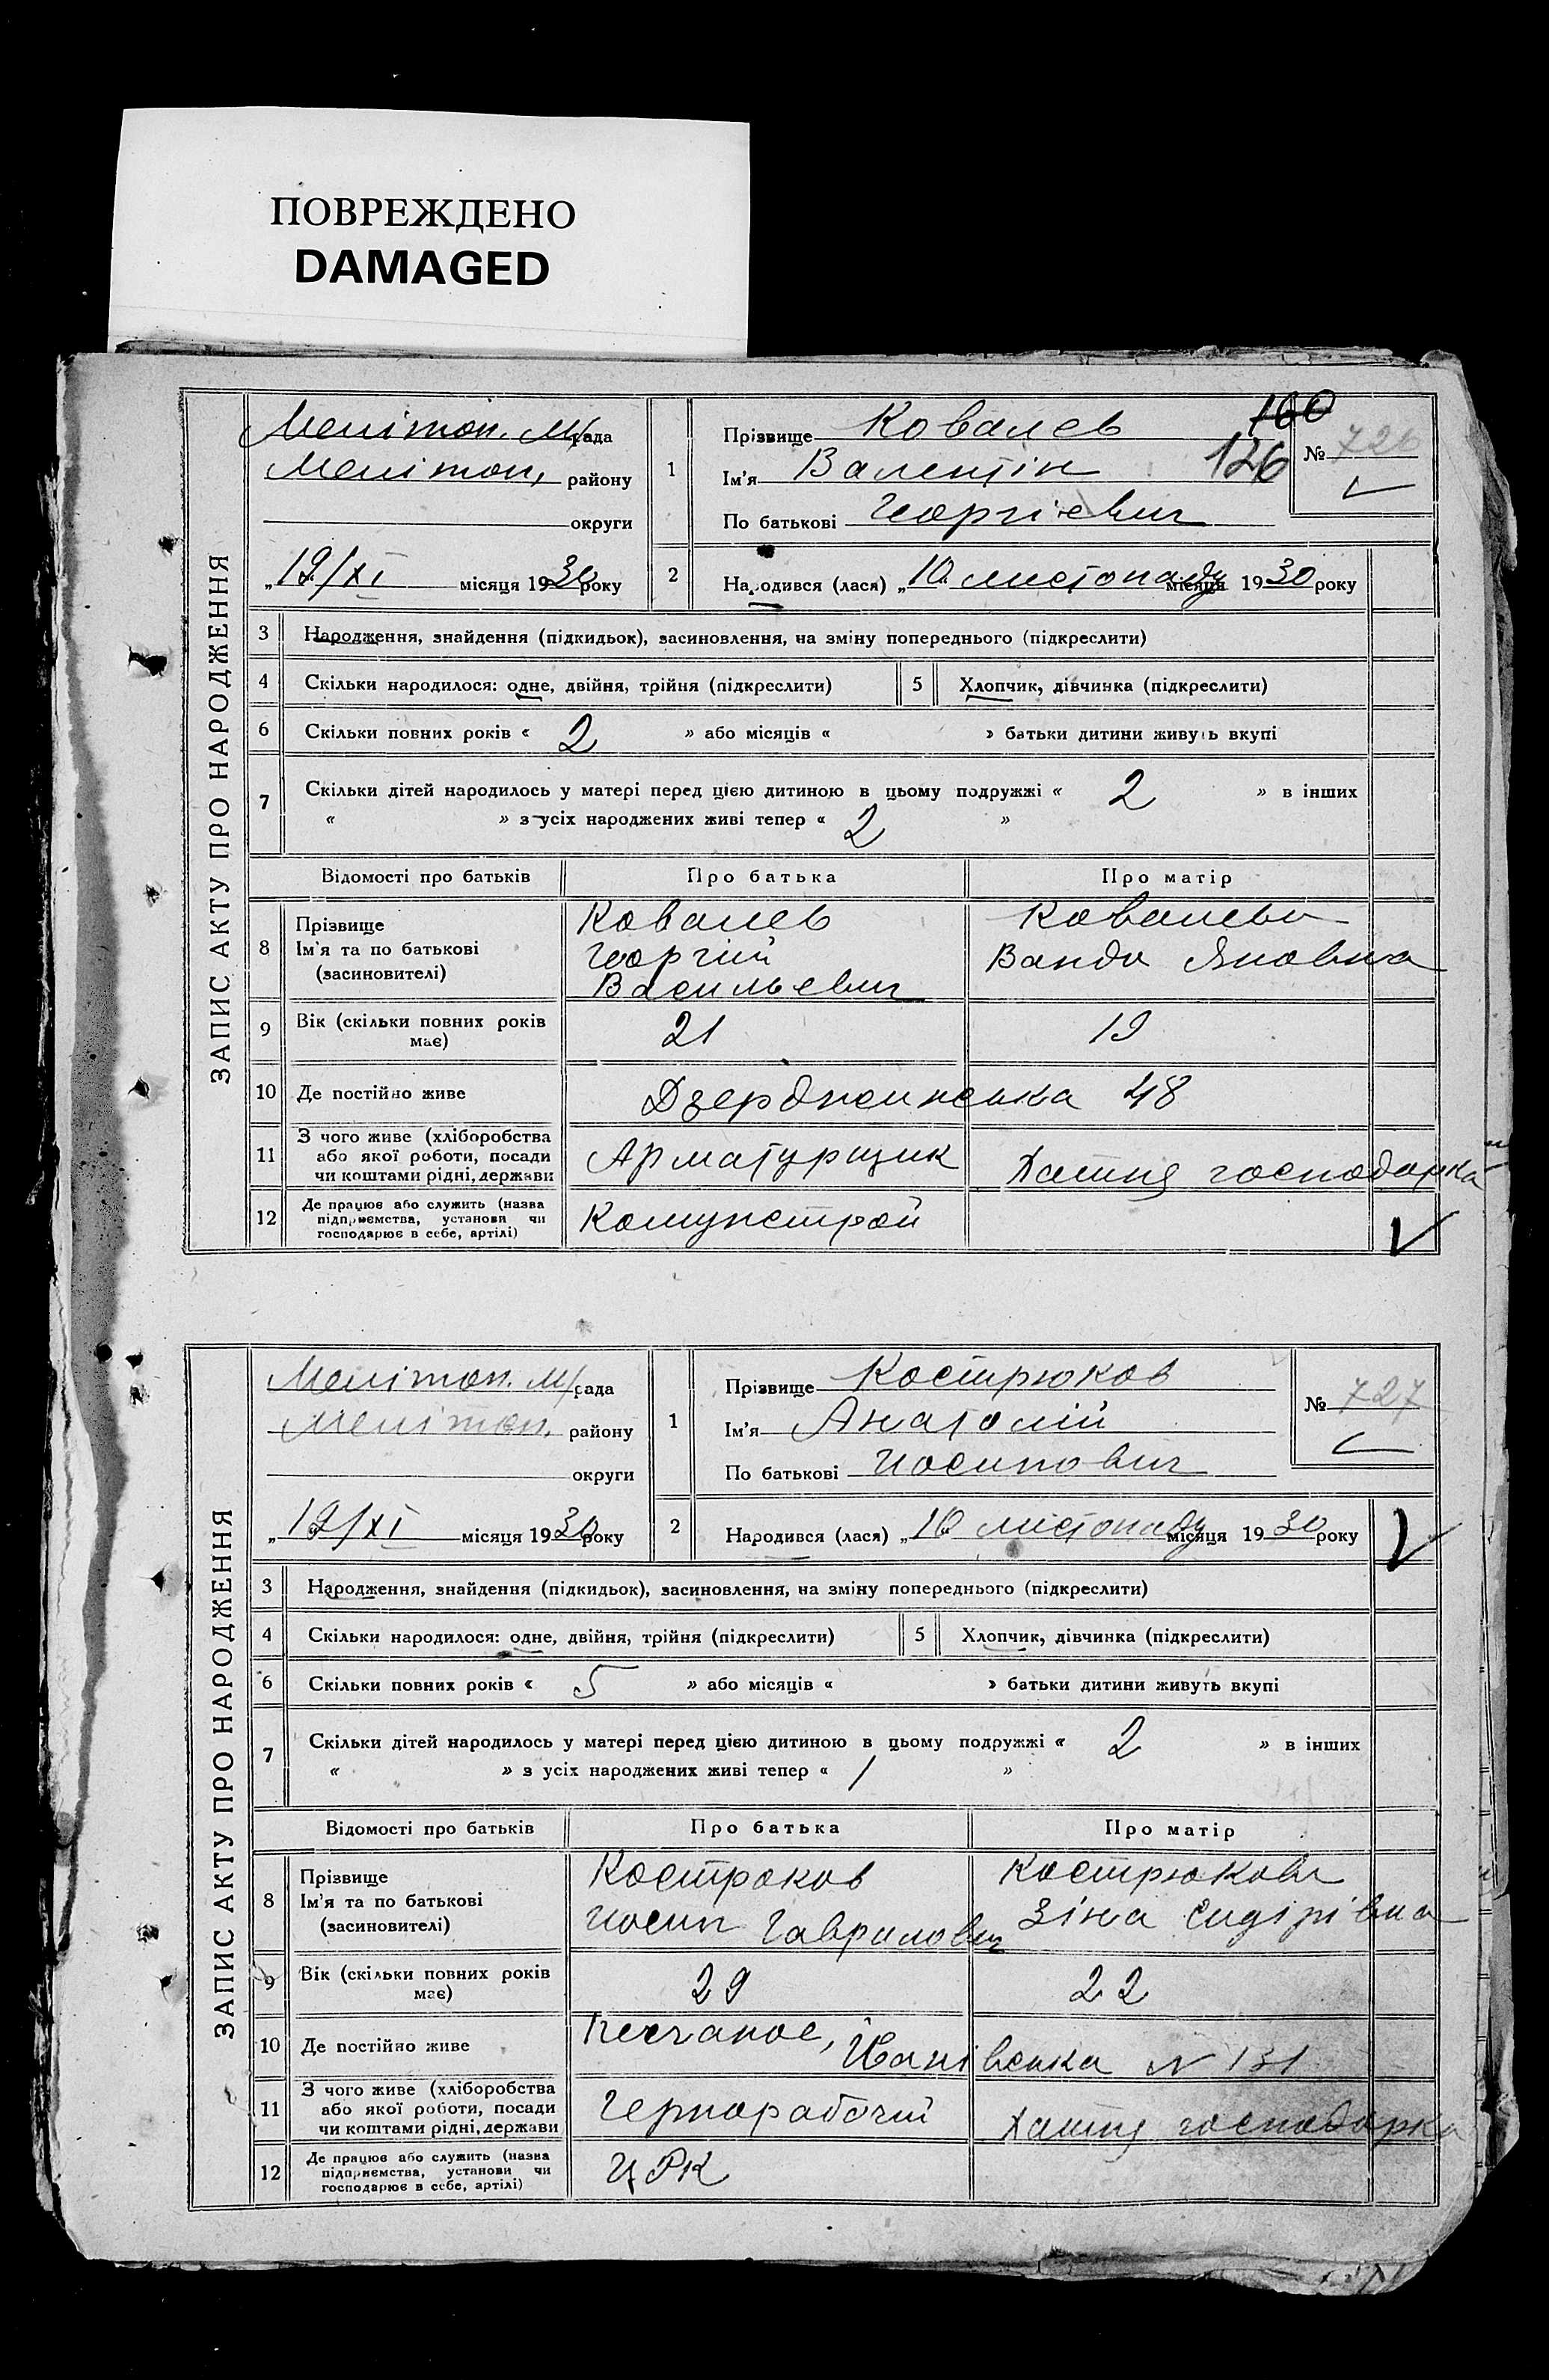 ПОВРЕЖДЕНО
DAMAGED
ЗАПИС АКТУ ПРО НАРОДЖЕННЯ
Мелітоп. М/рада
Мелітоп. району
округи
„19/XI місяця 1930 року
1 Прізвище Ковалев
Ім'я Валентін
По батькові Георгіевич
160
126
№ 726
2 Народився (лася) „10 листопаду місяця 1930 року
3 Народження, знайдення (підкидьок), засиновлення, на зміну попереднього (підкреслити)
4 Скільки народилося: одне, двійня, трійня (підкреслити) 5 Хлопчик, дівчинка (підкреслити)
6 Скільки повних років « 2 » або місяців « » батьки дитини живуть вкупі
7 Скільки дітей народилось у матері перед цією дитиною в цьому подружжі « 2 » в інших
« » з усіх народжених живі тепер « 2 »
Відомості про батьків Про батька Про матір
8 Прізвище Ковалев Ковалева
Ім'я та по батькові Георгий Ванда Яновна
(засиновителі) Васильевич
9 Вік (скільки повних років має) 21 19
10 Де постійно живе Дзерджинська 48
11 З чого живе (хліборобства
або якої роботи, посади Арматурщик Хатня господарка
чи коштами рідні, держави
12 Де працює або служить (назва
підприємства, установи чи Комунстрой
господарює в себе, артілі)
ЗАПИС АКТУ ПРО НАРОДЖЕННЯ
Мелітоп. М/рада
Мелітоп. району
округи
„19/XI місяця 1930 року
1 Прізвище Кострюков
Ім'я Анатолій
По батькові Иосипович
№ 727
2 Народився (лася) „10 листопаду місяця 1930 року
3 Народження, знайдення (підкидьок), засиновлення, на зміну попереднього (підкреслити)
4 Скільки народилося: одне, двійня, трійня (підкреслити) 5 Хлопчик, дівчинка (підкреслити)
6 Скільки повних років « 5 » або місяців « » батьки дитини живуть вкупі
7 Скільки дітей народилось у матері перед цією дитиною в цьому подружжі « 2 » в інших
« » з усіх народжених живі тепер « 1 »
Відомості про батьків Про батька Про матір
8 Прізвище Кострюков Кострюкова
Ім'я та по батькові Иосип Гаврилович Зіна
(засиновителі)
9 Вік (скільки повних років має) 29 22
10 Де постійно живе Песчаное, № 131
11 З чого живе (хліборобства
або якої роботи, посади Чернорабочий Хатня господарка
чи коштами рідні, держави
12 Де працює або служить (назва
підприємства, установи чи ЦРК
господарює в себе, артілі)